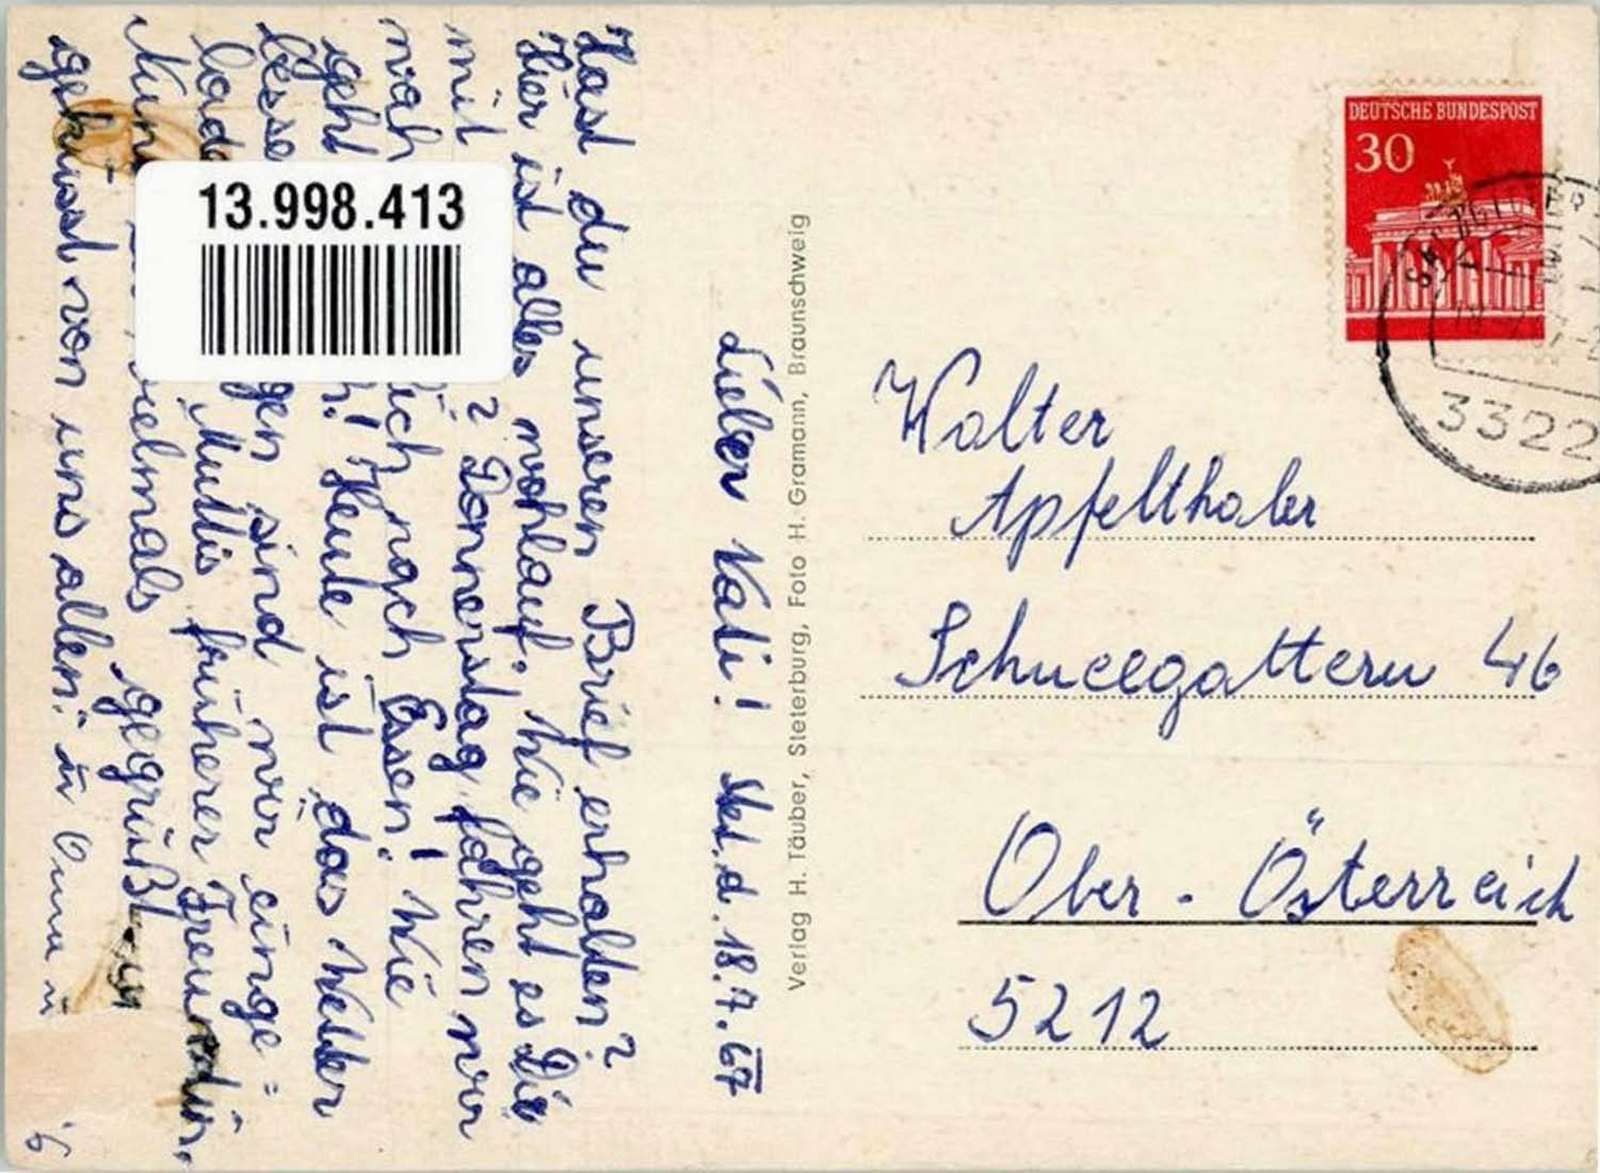 Lieber Vati! Stet. d. 18.7.67
Hast du unseren Brief erhalten?
Hier ist alles wohlauf. Wie geht es Dir
mit ? Donnerstag fahren wir
ich nach Essen! Wie
geht ! Heute ist das Wetter
gen sind wir einge=
Muttis früherer Freundin.
vielmals gegrüßt u.
geküsst von uns allen! u. Oma u.
13.998.413
Verlag H. Täuber, Steterburg, Foto H. Gramann, Braunschweig
DEUTSCHE BUNDESPOST
30
3322
Walter
Apfelthaler
Schneegattern 46
Ober - Österreich
5212